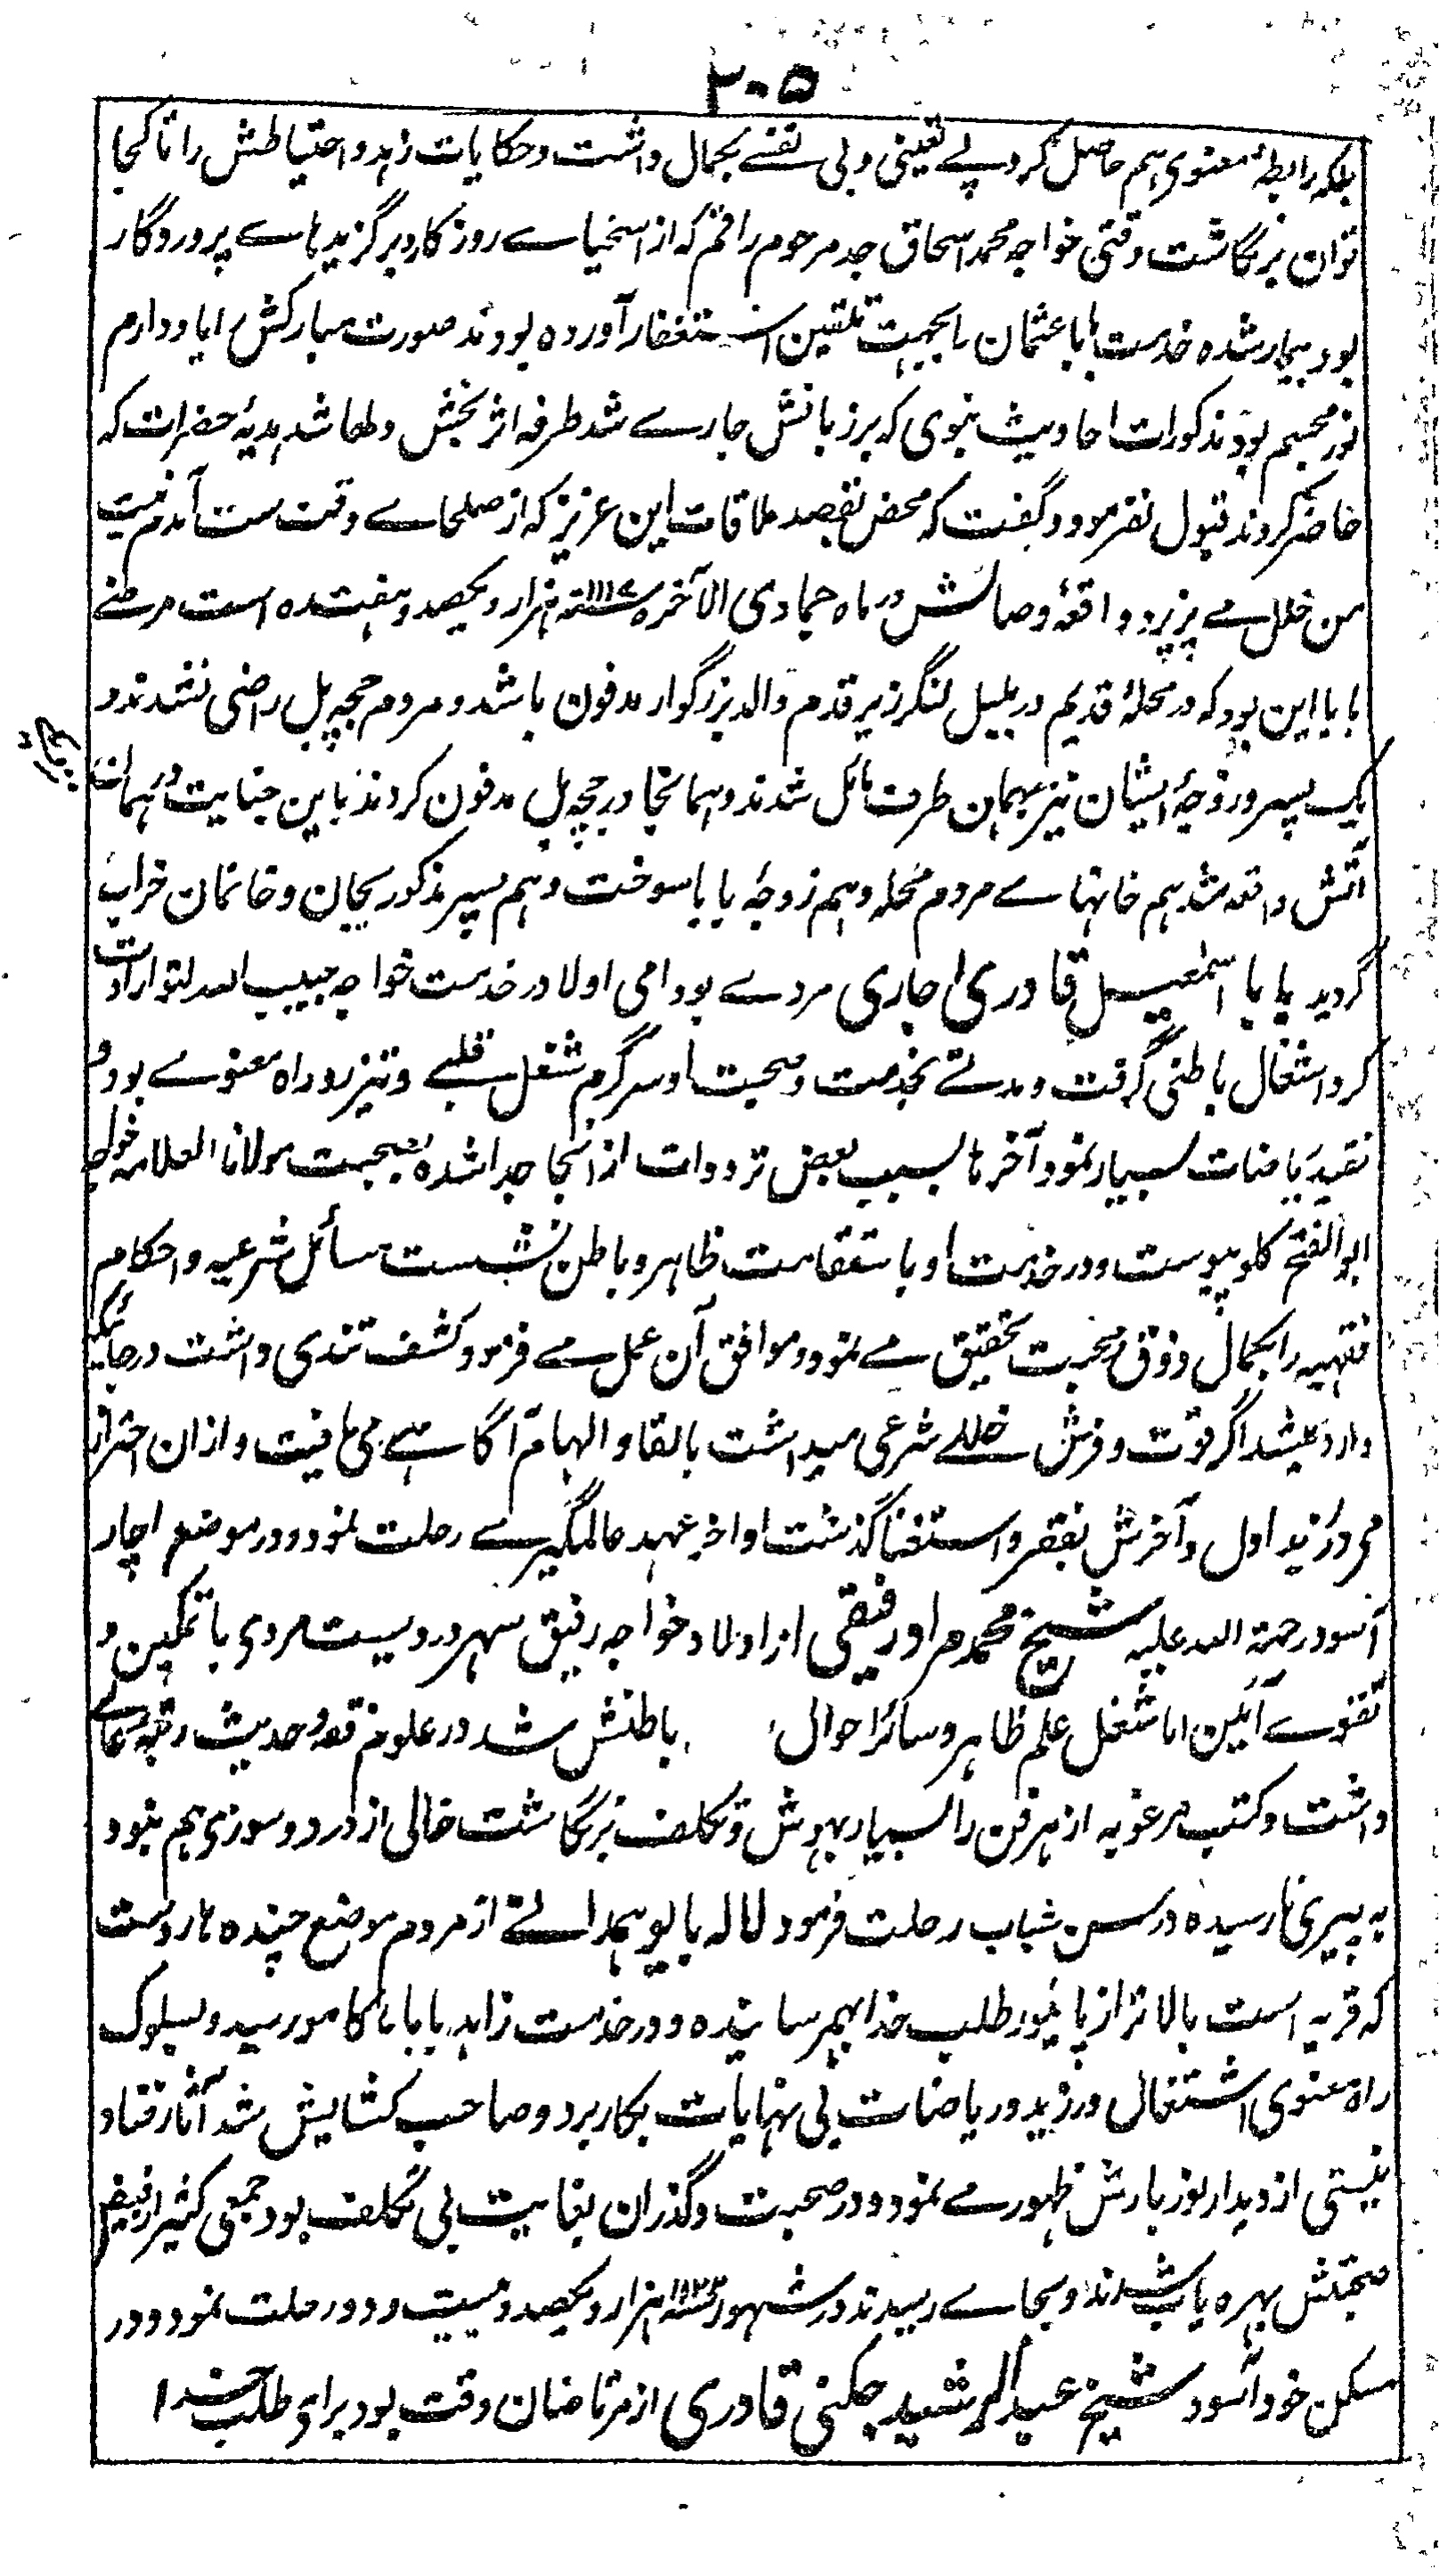 ۲۰۵
بلکه رابطهٔ معنوی هم حاصل کرد بے تعینی و بی نفسے بکمال داشت و حکایات زهد و احتیاطش را تا کجا
توان بر نگاشت وقتی خواجه محمد اسحاق جد مرحوم راقم که از اسخیاے روزگار و برگزیدهاے پروردگار
بود بیمار شده خدمت بابا عثمان را بجهت تلقین استغفار آورده بودند صورت مبارکش را یاد دارم
نور مجسم بود مذکورات احادیث نبوی که بر زبانش جارے شد طرفه اثر بخش دلها شد هدیهٔ حضرات که
حاضر کردند قبول نفرمود و گفت که محض بقصد ملاقات این عزیز که از صلحاے وقت ست آمدم نیت
من خلل مے پزیرد واقعهٔ وصالش در ماه جمادی الآخره سنه ۱۱۱۷ هزار و یکصد و هفتده است مرضئے
بابا این بود که در محلهٔ قدیم در بلبل لنگر زیر قدم والد بزرگوار مدفون باشد و مردم حچه پل راضی نشدند و
یک پسر و زوجهٔ ایشان نیز بهمان طرف مائل شدند و همانجا در حچه پل مدفون کردند باین جنایت در همان
آتش واقعه شد هم خانهاے مردم محله و هم زوجهٔ بابا سوخت و هم پسر مذکور بیجان و خانمان خراب
گردید بابا اسمعیل قادری اچاری مردے بود امی اولا در خدمت خواجه حبیب الله لتو ارادت
کرد اشغال باطنی گرفت و مدتے بخدمت و صحبت او سرگرم شغل قلبے و تیز رو راه معنوے بود و
نقید ریاضات بسیار نمود آخرها بسبب بعض ترددات از آنجا جدا شده بصحبت مولانا العلامه خواجه
ابو الفتح کلو پیوست و در خدمت او با ستقامت ظاهر و باطن نشست مسائل شرعیه و احکام
فقهیه را بکمال ذوق و محبت تحقیق مے نمود و موافق آن عمل مے فرمود کشف تندی داشت در جائیکه
وارد میشد اگر قوت و فرش خللے شرعی میداشت بالقا و الهام آگاهے می یافت و از ان احتراز
می ورزید اول و آخرش بفقر و استغنا گذشت اواخر عهد عالمگیرے رحلت نمود و در موضع اچار
آسود رحمة الله علیه شیخ محمد مراد رفیقی از اولاد خواجه رفیق سهروردیست مردی با تمکین و
تقوے آئین اما شغل علم ظاهر و سائر احوال باطنش شد در علوم فقه و حدیث رتبهٔ عالے
داشت و کتب مرغوبه از هر فن را بسیار بهوش و تکلف برنگاشت خالی از درد و سوزی هم نبود
به پیری نا رسیده در سن شباب رحلت فرمود لاله بابو همدانے از مردم موضع چنده هاروست
که قریه است بالاتر از پانپور طلب خدا بهم رسانیده و در خدمت زاهد بابا ناکامو رسید و بسلوک
راه معنوی اشتغال ورزید و ریاضات بی نهایات بکار برد و صاحب کشایش شد آثار فنا و
نیستی از دیدار نور بارش ظهور مے نمود و در صحبت و گذران بغایت بی تکلف بود جمعی کثیر از فیض
صحبتش بهره یاب شدند و بجاے رسیدند در شهور سنه هزار و یکصد و بیست و دو رحلت نمود و در
مسکن خود آسود شیخ عبد الرشید چکنی قادری از مرتاضان وقت بود برای طلب خدا